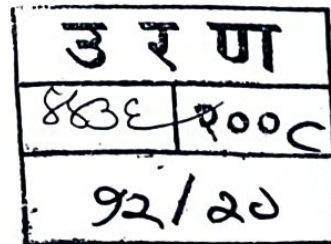 उ र ण
४४३६ २००८
१२/२०